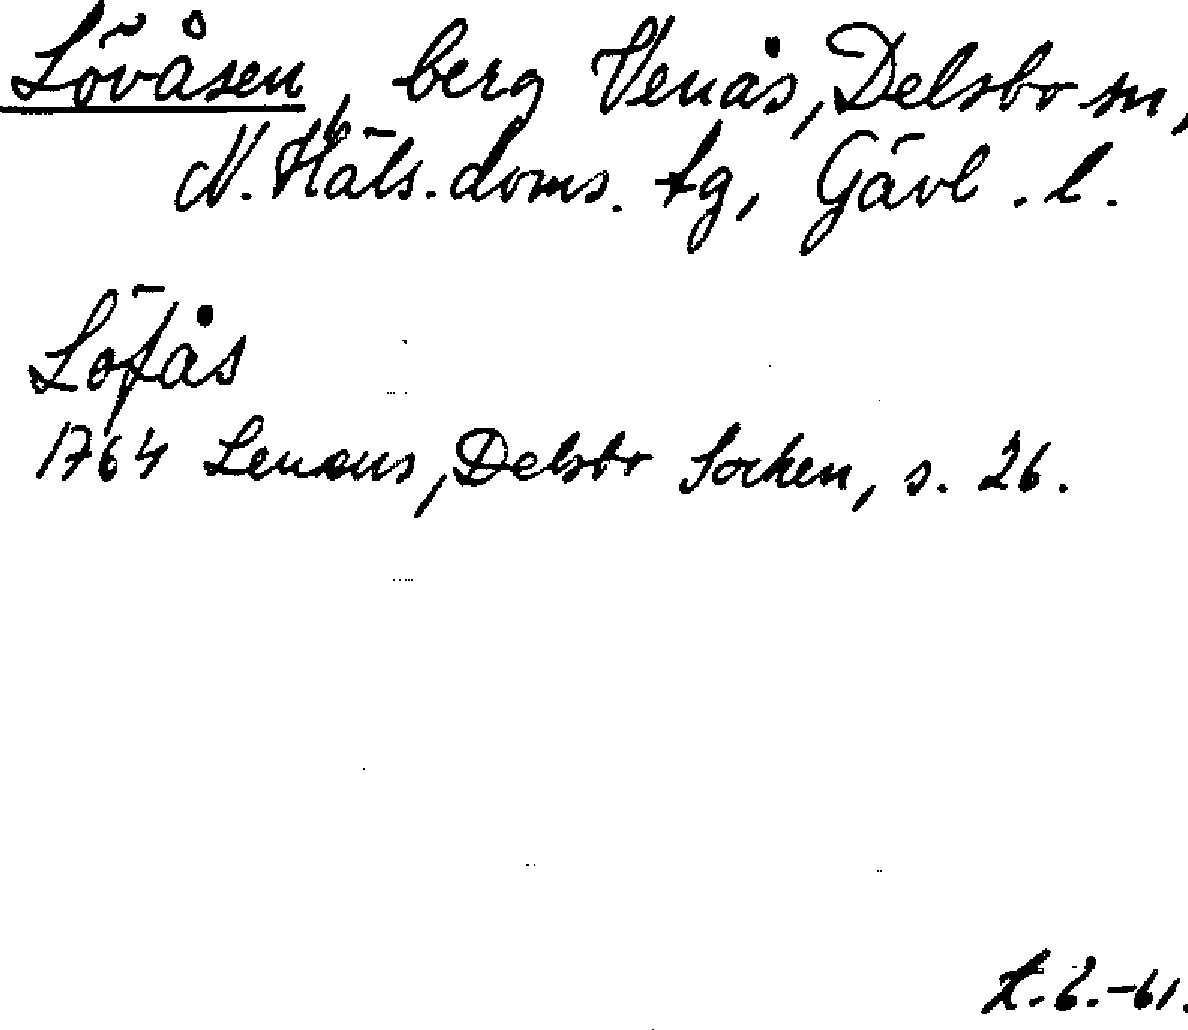 Lövåsen, berg Venås, Delsbo sn,
N. Häls. doms. tg, Gävl. l.
Löfås
1764 Lenæus, Delsbo Socken, s. 26.